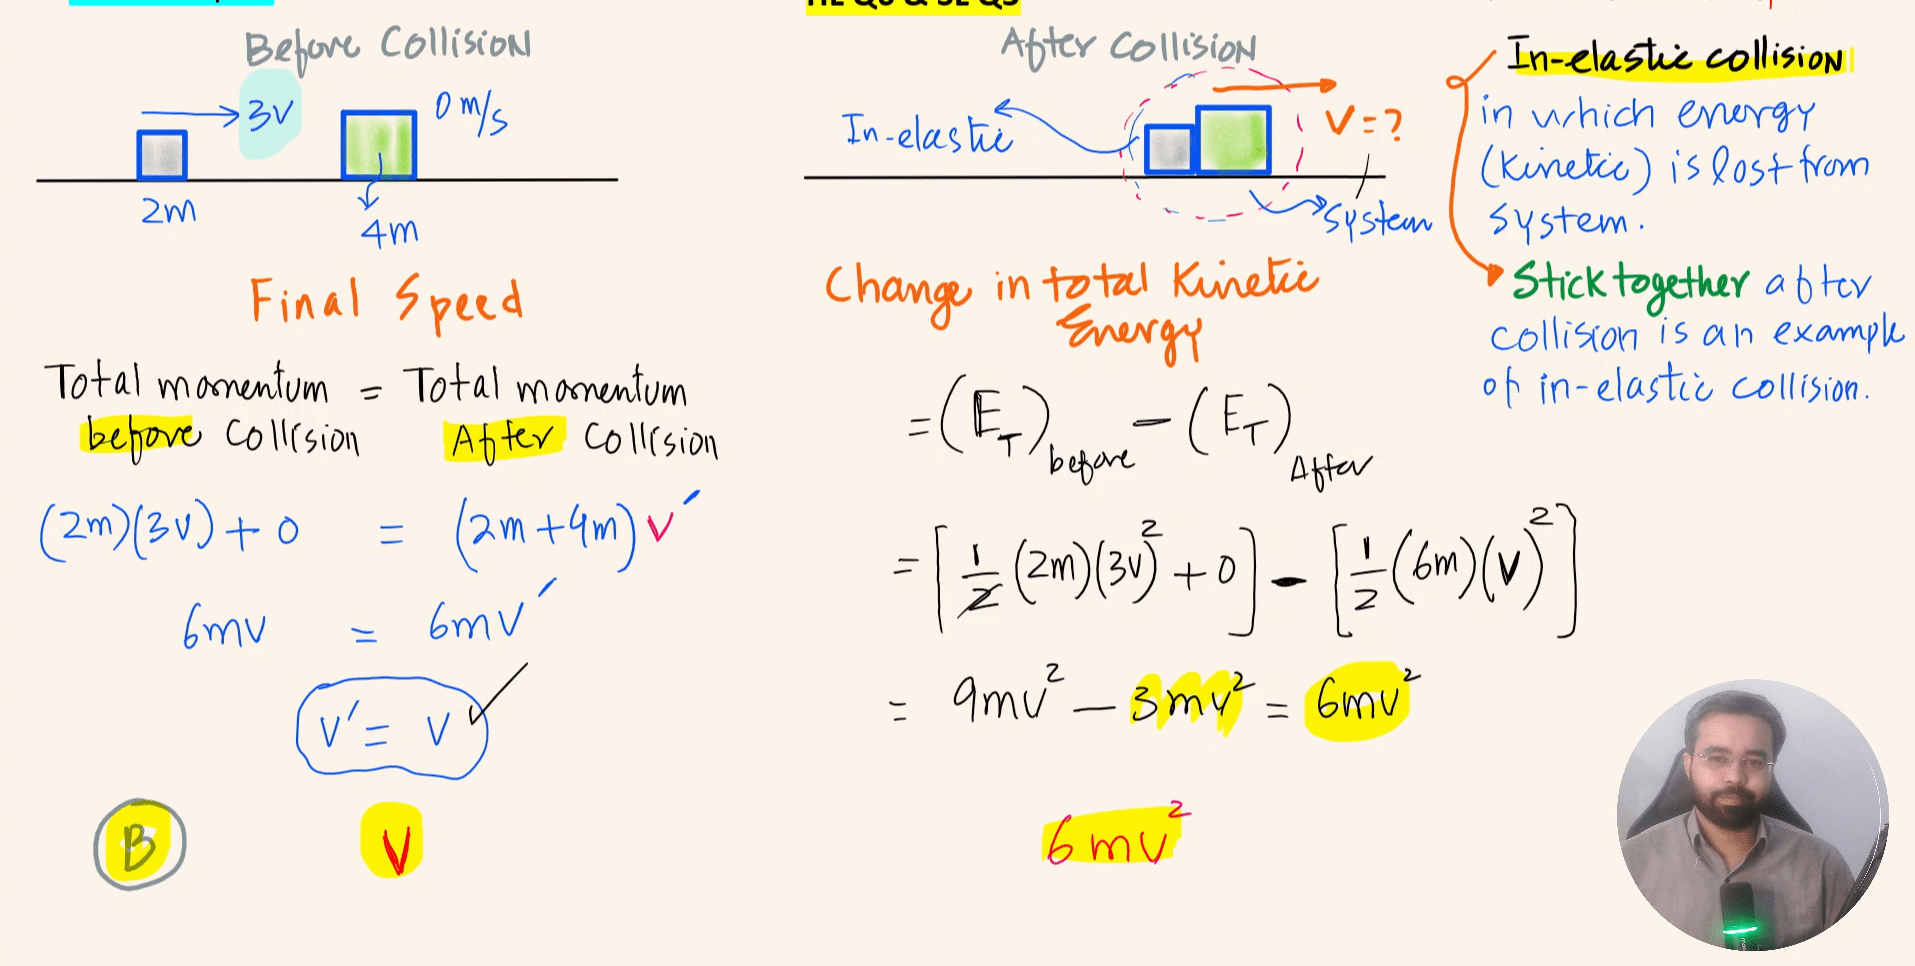 Before Collision
3v
0 m/s
2m
4m
Final Speed
Total momentum = Total momentum
before Collision After Collision
(2m)(3v) + 0 = (2m+4m) v′
6mv = 6mv′
v′ = v ✓
B
v
After Collision
In-elastic
v = ?
System
Change in total Kinetic
Energy
= (E_T)before − (E_T)After
= [1/2 (2m)(3v)² + 0] − [1/2 (6m)(v)²]
= 9mv² − 3mv² = 6mv²
6mv²
In-elastic collision
in which energy
(kinetic) is lost from
system.
Stick together after
collision is an example
of in-elastic collision.